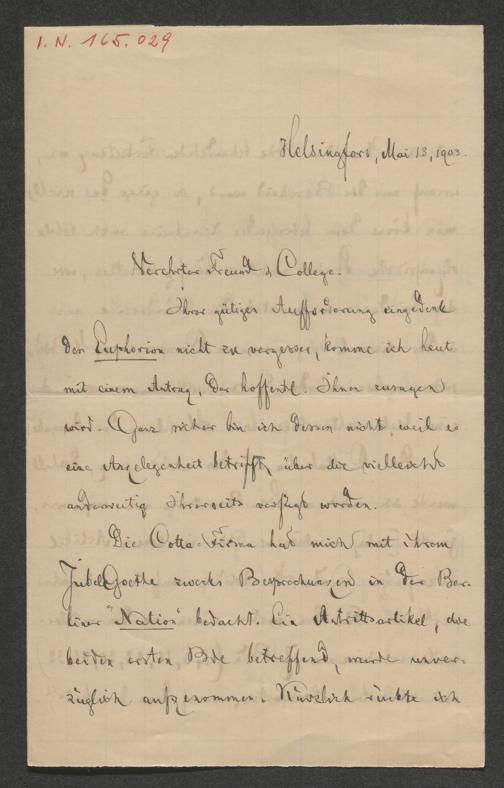 I. N. 165.029
Helsingfors, Mai 13, 1903.
Verehrter Freund & College.
Ihrer gütigen Aufforderung eingedenk
den Euphorion nicht zu vergessen, komme ich heut
mit einem Antrag, der hoffentl. Ihnen zusagen
wird. Ganz sicher bin ich dessen nicht, weil es
eine Angelegenheit betrifft, über die vielleicht
anderweitig Ihrerseits verfügt worden.
Die Cotta-Firma hat mich mit ihrem
Jubel Goethe zwecks Besprechungen in der Ber-
liner "Nation" bedacht. Ein Antrittsartikel, die
beiden ersten Bde betreffend, wurde unver-
züglich aufgenommen. Kürzlich rückte ich